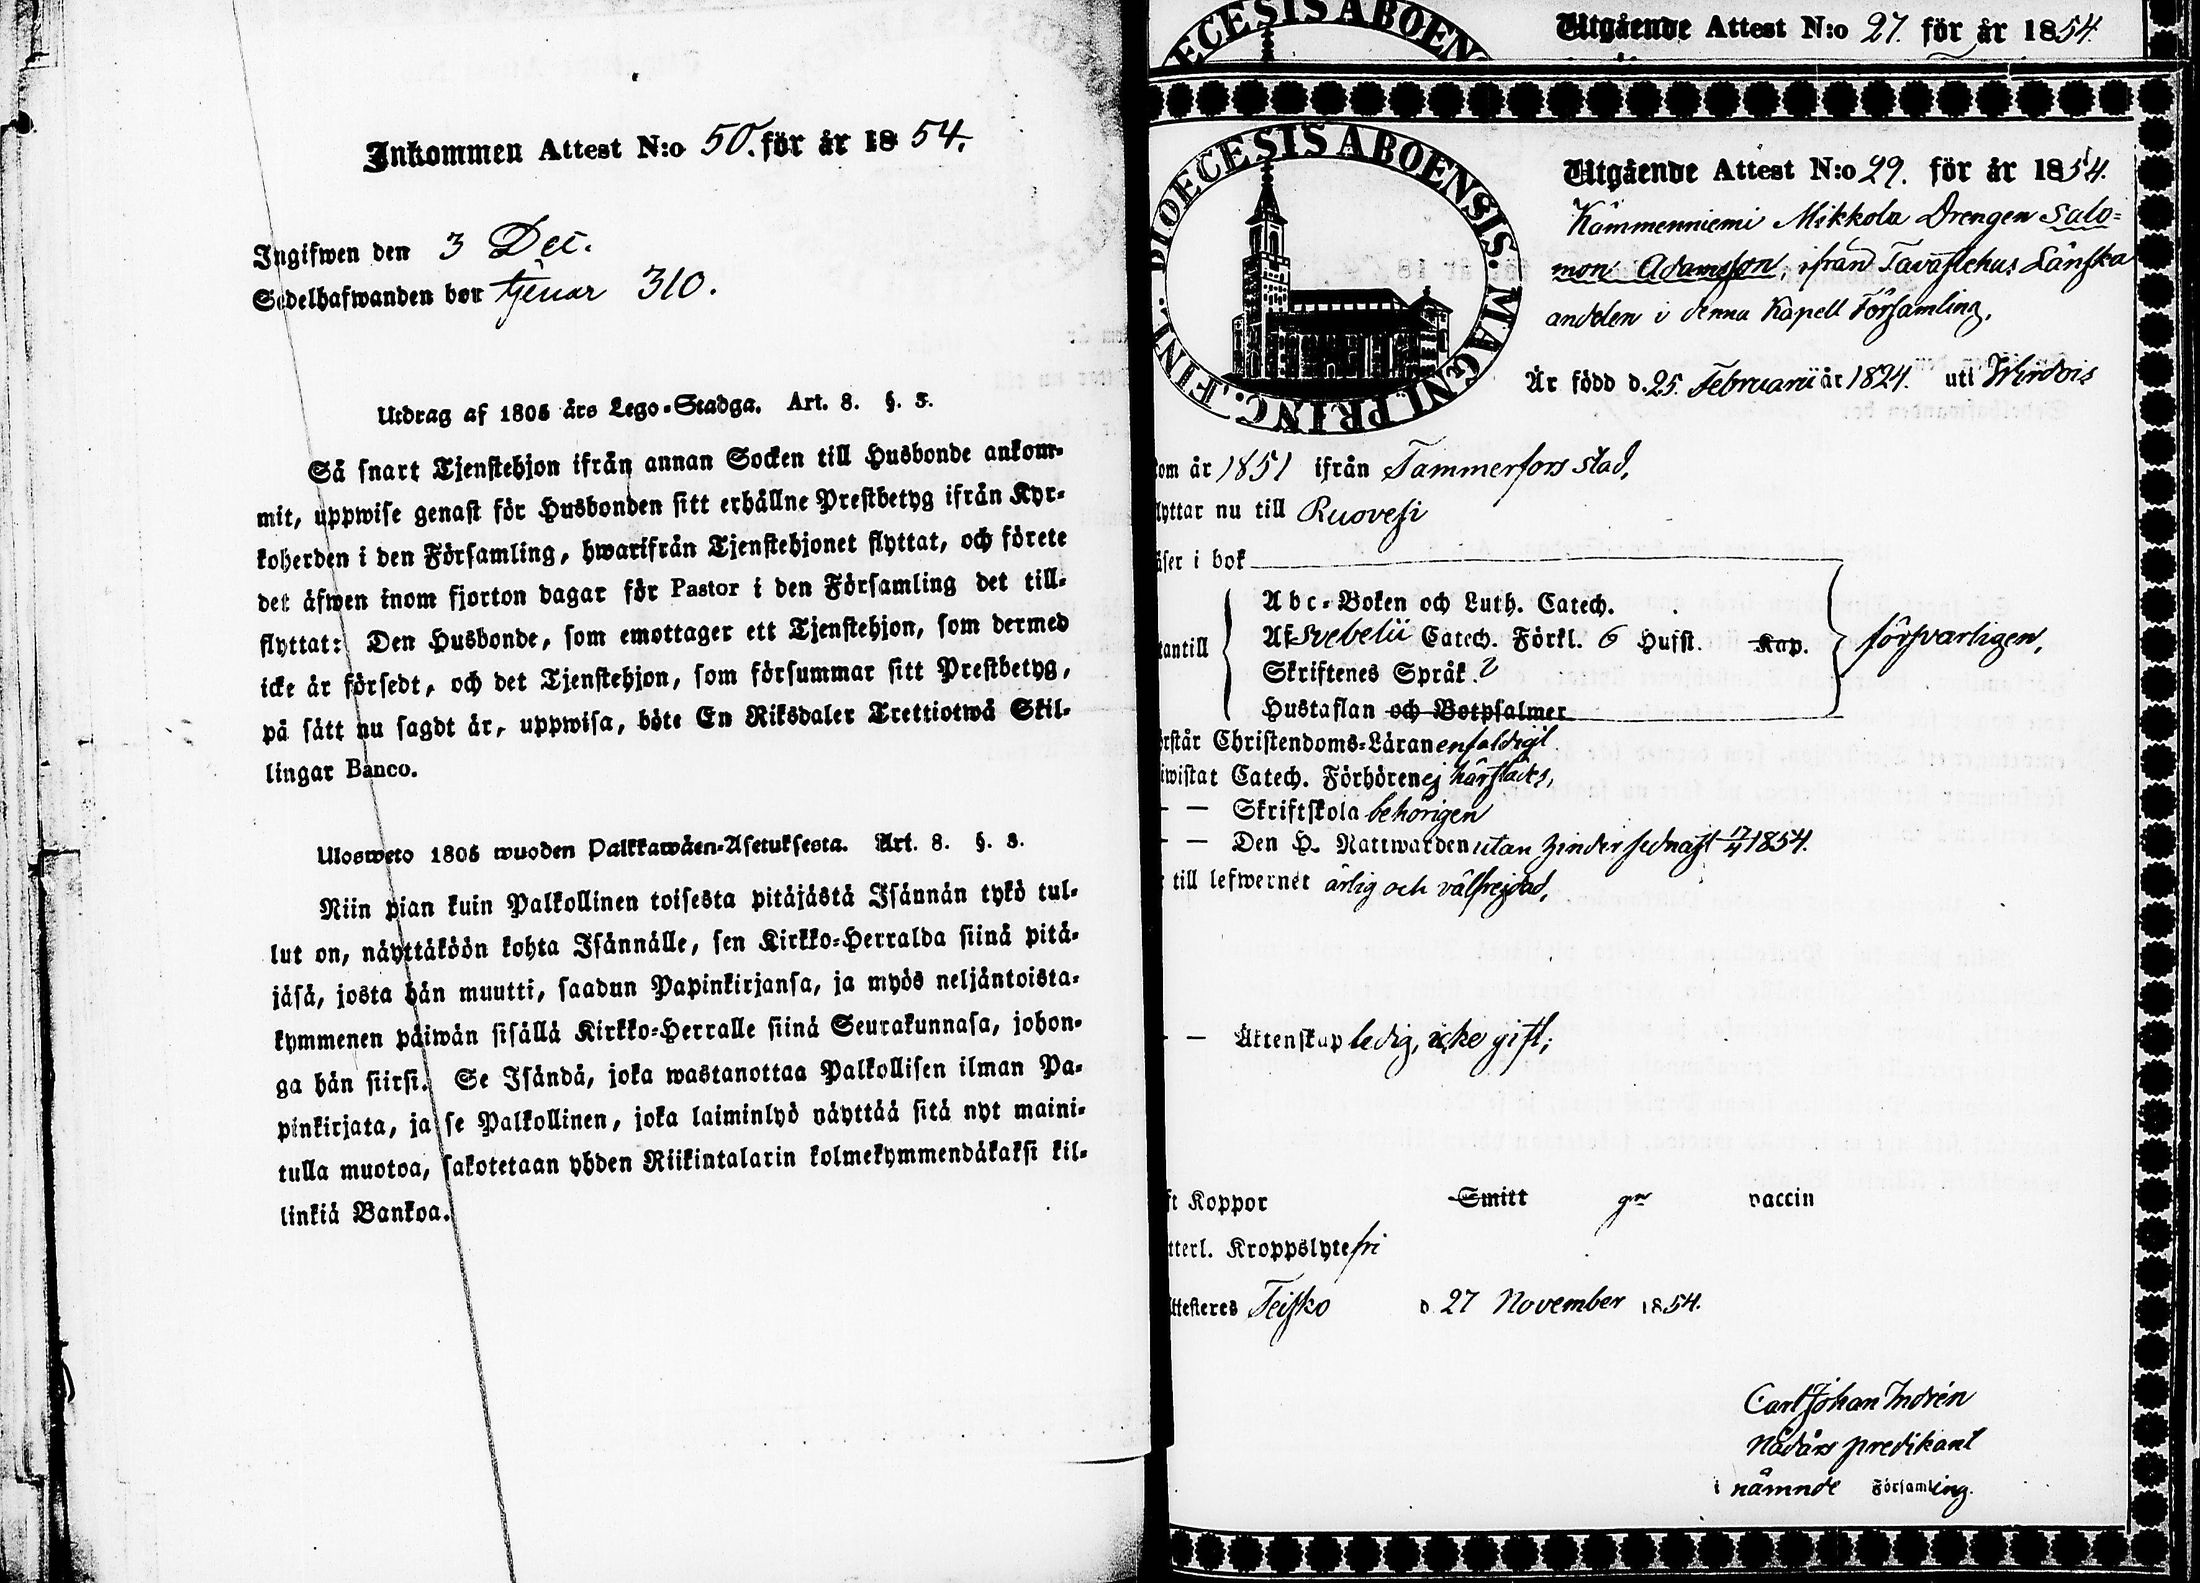 Inkommen Attest N:o 50. för år 1854.
Ingifwen den 3 Dec.
Sedelhafwanden bor tjenar 310.
Utdrag af 1805 års Lego-Stadga. Art. 8. §. 3.
Så snart Tjenstehjon ifrån annan Socken till Husbonde ankom-
mit, uppwise genast för Husbonden sitt erhållne Prestbetyg ifrån Kyr-
koherden i den Församling, hwarifrån Tjenstehjonet flyttat, och förete
det äfwen inom fjorton dagar för Pastor i den Församling det till-
flyttat: Den Husbonde, som emottager ett Tjenstehjon, som dermed
icke är försedt, och det Tjenstehjon, som försummar sitt Prestbetyg,
på sätt nu sagdt är, uppwisa, böte En Riksdaler Trettiotwå Skil-
lingar Banco.
Ulosweto 1805 wuoden Palkkawäen-Asetuksesta. Art. 8. §. 3.
Niin pian kuin Palkollinen toisesta pitäjästä Isännän tykö tul-
lut on, näyttäköön kohta Isännälle, sen Kirkko-Herralda siinä pitä-
jäsä, josta hän muutti, saadun Papinkirjansa, ja myös neljäntoista-
kymmenen päiwän sisällä Kirkko-Herralle siinä Seurakunnasa, johon-
ga hän siirsi. Se Isändä, joka wastanottaa Palkollisen ilman Pa-
pinkirjata, ja se Palkollinen, joka laiminlyö näyttää sitä nyt maini-
tulla muotoa, sakotetaan yhden Riikintalarin kolmekymmendäkaksi kil-
linkiä Bankoa.
DIOECESIS ABOEN
Utgående Attest N:o 27. för år 1854.
DIOECESIS ABOENSIS. MAGNI PRINC. FINL.
Utgående Attest N:o 29. för år 1854.
Kämmenniemi Mikkola Drengen Salo-
mon Adamsson, ifrån Tavastehus Länska
andelen i denna Kapell Församling,
Är född d. 25. Februarii år 1824. uti Wirdois
kom år 1851 ifrån Tammerfors stad,
flyttar nu till Ruovesi
läser i bok
Abc-Boken och Luth. Catech.
utantill Af Svebelii Catech. Förkl. 6 Hufst. Kap. försvarligen,
Skriftenes Språk.
Hustaflan och Botpsalmer
örstår Christendoms-Läran enfaldigt
iwistat Catech. Förhören ej härstädes,
— — Skriftskola behörigen
— — Den H. Nattwarden utan hinder sednast 17/4 1854.
till lefwernet ärlig och välfrejdad,
— — Äktenskap ledig, icke gift;
ft Koppor Smitt gm vaccin
tterl. Kroppslyte fri
Attesteres Teisko d. 27 November 1854.
Carl Johan Indrén
Nådårs predikant
i nämnde Församling.